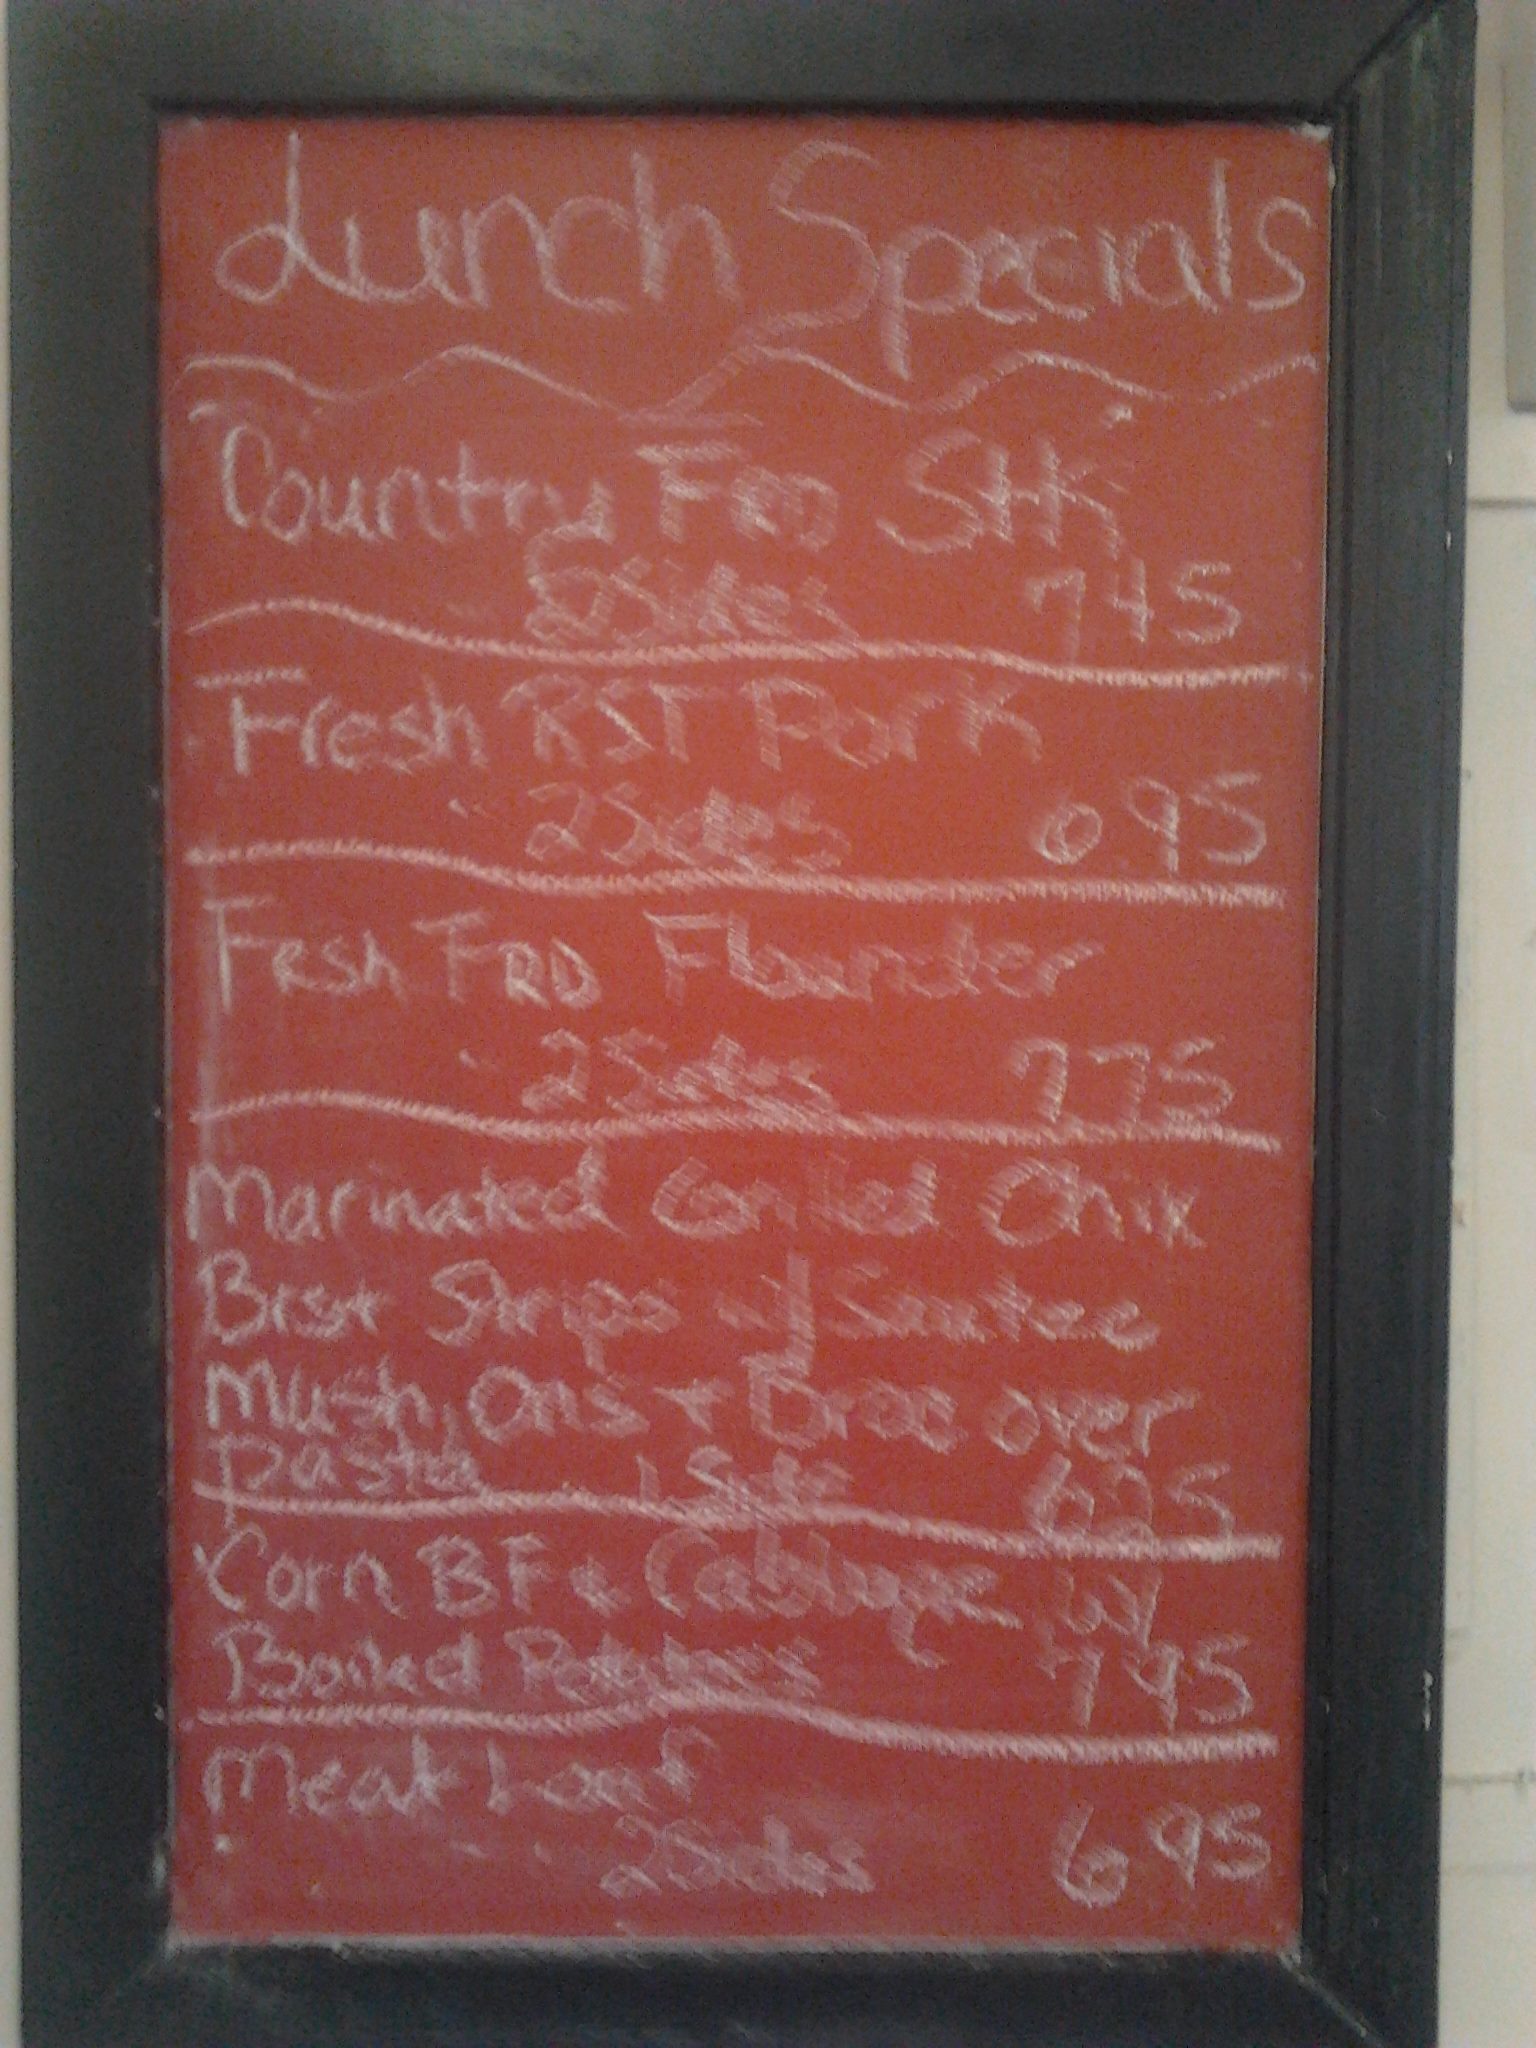 Lunch Specials
Country FRD Stk
2 Sides 745
Fresh RST Pork
2 Sides 6.95
Fresh FRD Flounder
2 Sides 775
Marinated Grilled Chix
Brst Strips w/ Sautee
Mush, Ons + Broc over
Pasta 1 Side 625
Corn BF & Cabbage w/
Boiled Potatoes 795
Meat Loaf
2 Sides 695